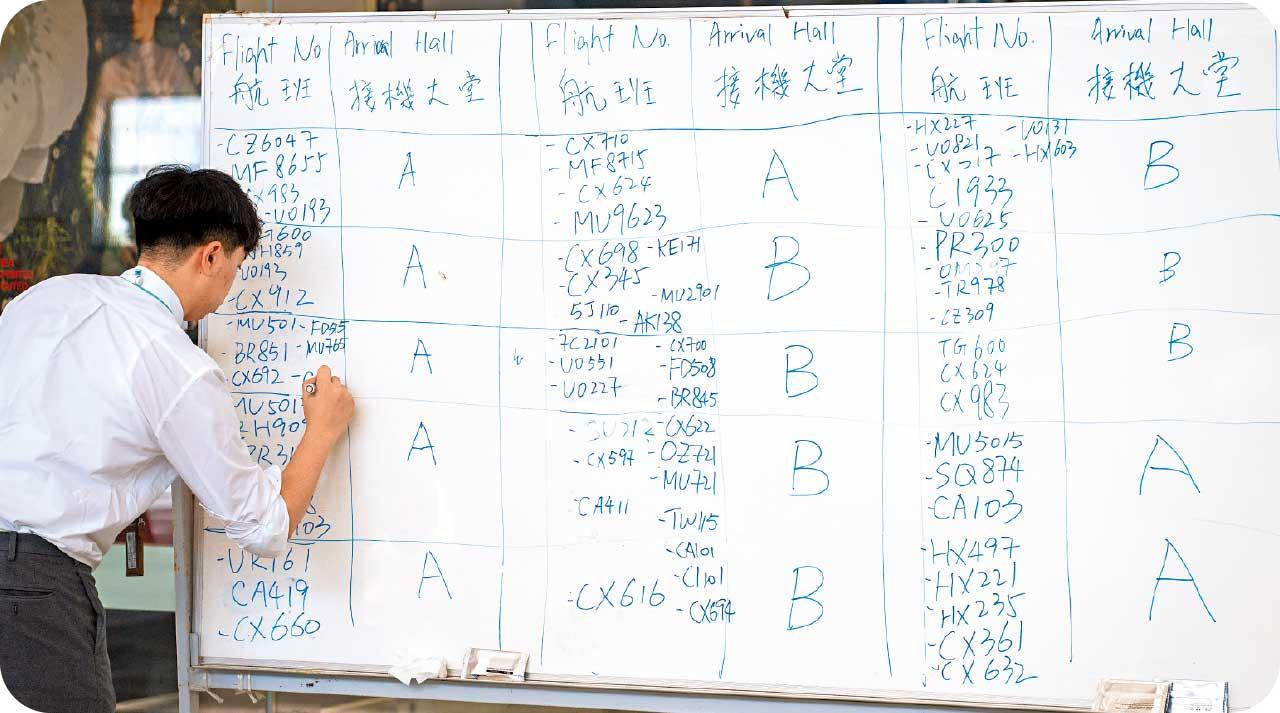 Flight No. Arrival Hall Flight No. Arrival Hall Flight No. Arrival Hall
航班 接機大堂 航班 接機大堂 航班 接機大堂
-CZ6047
MF8655
A
CX983
-UO193
G600
H859
UO193
-CX912
A
-MU501 -FD55
-BR851 -MU765
-CX692
A
MU501
A
-UK161
CA419
-CX660
A
-CX710
-MF8715
-CX624
-MU9623
A
-CX698 -KE171
-CX345
5J110 -MU2901
-AK138
B
-7C2101 -CX700
-UO551 -FD508
-UO227 -BR845
B
-CX622
-CX597 -OZ721
-MU721
-CA411
-TW115
B
-CA101
-CI101
-CX616 -CX694
B
-HX227 -UO131
-UO821 -HX603
CI933
-UO625
B
-PR300
-TR978
-CZ309
B
TG600
CX624
CX983
B
-MU5015
-SQ874
-CA103
A
-HX497
-HX221
-HX235
-CX361
-CX632
A